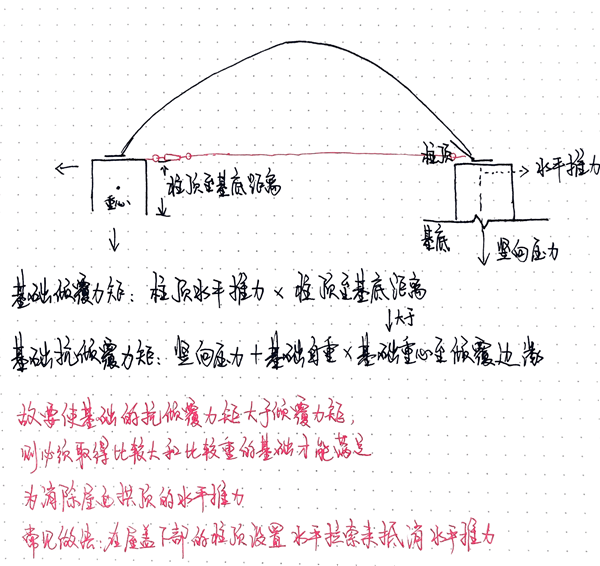 柱顶
水平推力
柱顶至基底距离
重心
基底
竖向压力
基础倾覆力矩：柱顶水平推力×柱顶至基底距离
大于
基础抗倾覆力矩：竖向压力+基础自重×基础重心至倾覆边缘
故要使基础的抗倾覆力矩大于倾覆力矩，
则必须取得比较大和比较重的基础才能满足
为消除屋面拱顶的水平推力
常见做法：在屋盖下部的柱顶设置水平拉索来抵消水平推力